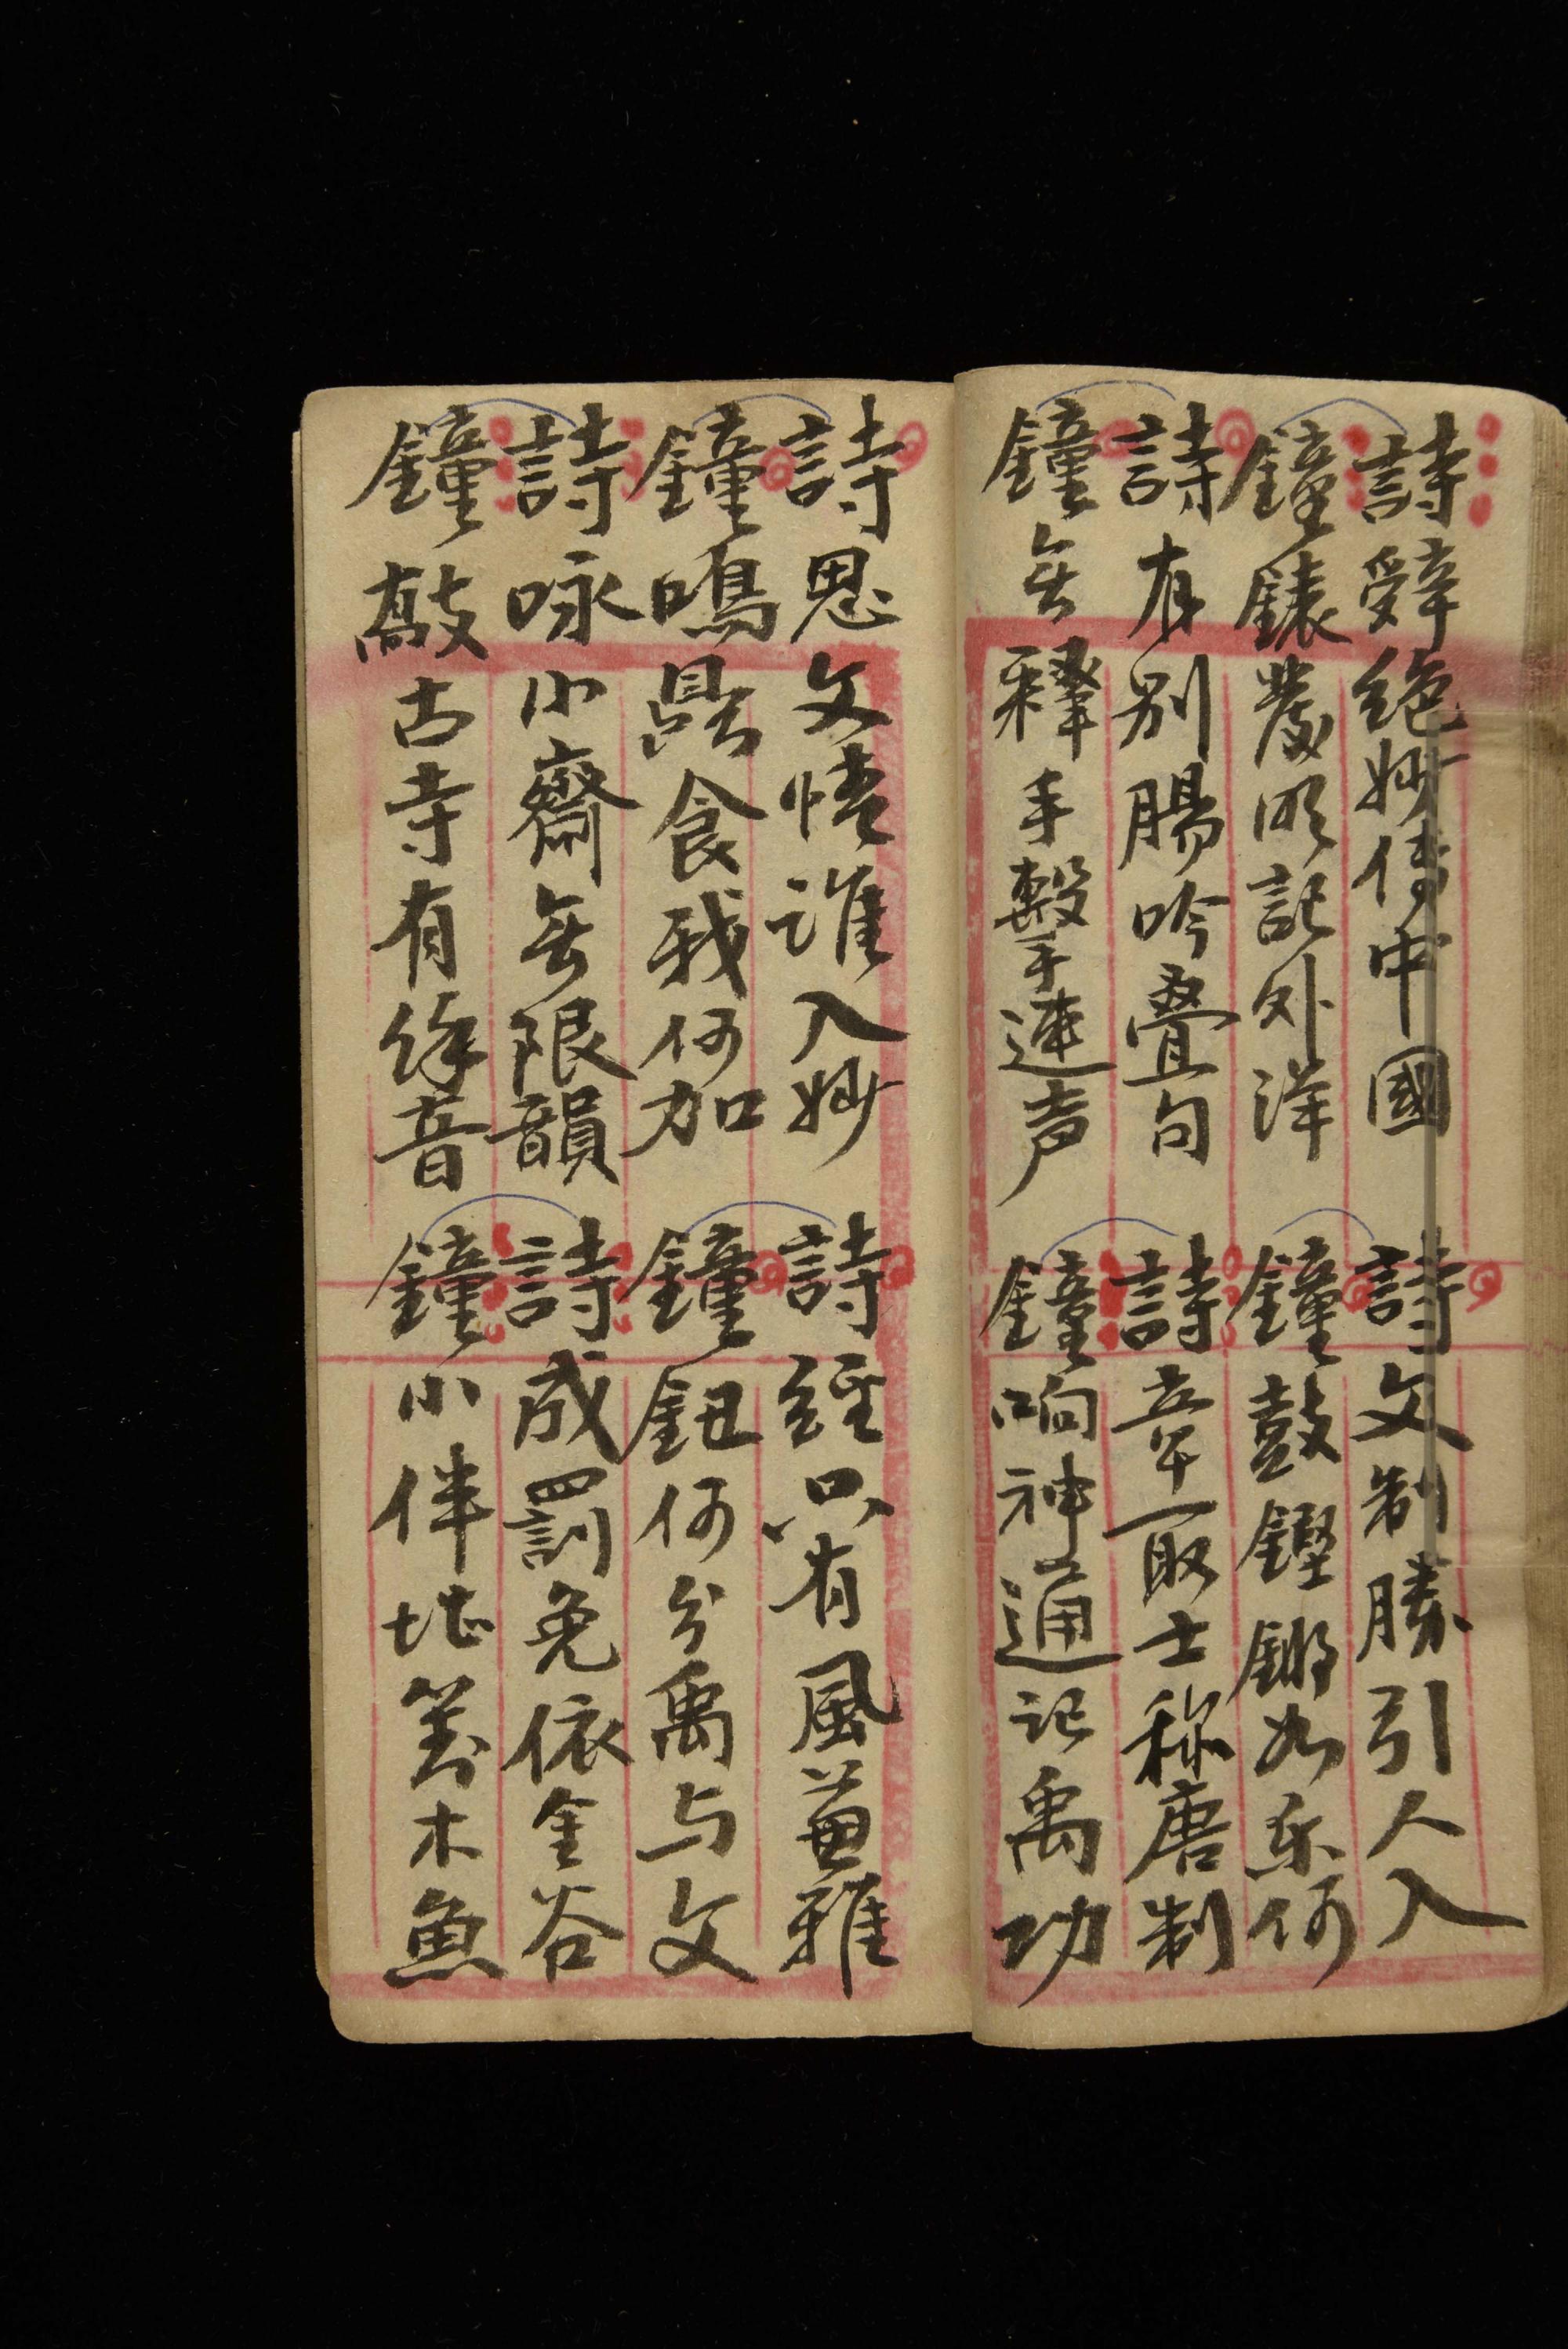 詩辤絶妙传中國
鐘錶發明記外洋
詩有别腸吟疊句
鐘無釋手擊連声
詩文制勝引人入
鐘鼓鏗鏘如乐何
詩章取士称唐制
鐘响神通記禹功
詩思文情谁入妙
鐘鳴鼎食我何加
詩咏小齋無限韻
鐘敲古寺有餘音
詩經只有風兼雅
鐘鈕何分禹与文
詩成罰免依金谷
鐘小伴木魚